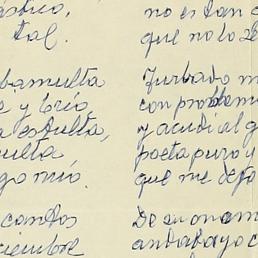 ástico,
tal.
bamulta
e y brío
a estulta,
ulta
go mío.
cantos
ciembre
no es tan
que no lo
Turbado m
con problem
y acudí al g
poeta puro y
que me deja
De su onom
andabayo c